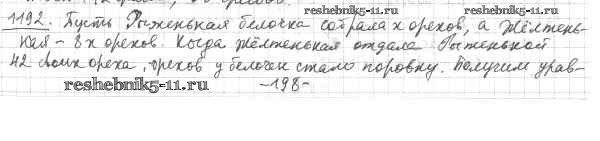 reshebnik5-11.ru
1192. Пусть Рыженькая белочка собрала x орехов, а Жёлтень-
кая - 8x орехов. Когда Жёлтенькая отдала Рыженькой
42 своих ореха, орехов у белочек стало поровну. Получим урав-
reshebnik5-11.ru
-198-